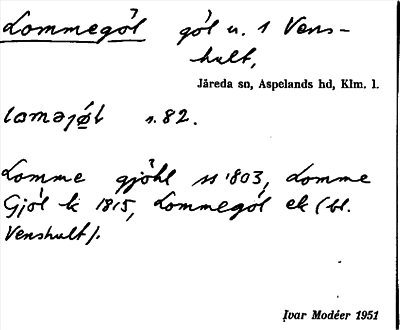 Lommegöl göl u. 1 Vens-
hult,
Järeda sn, Aspelands hd, Klm. l.
s. 82.
Lomme gjöhl 1803, Lomme
Gjöl k 1815, Lommegöl ek (bl.
Venshult).
Ivar Modéer 1951